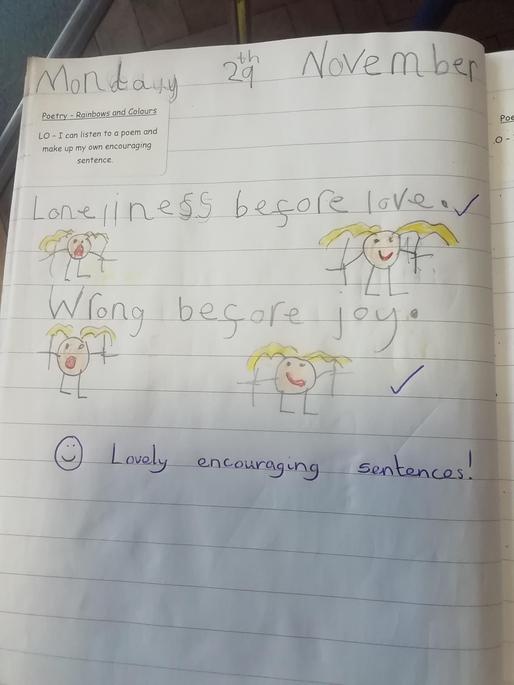 Monday 29th November
Poetry - Rainbows and Colours
LO - I can listen to a poem and
make up my own encouraging
sentence.
Loneliness before love.
Wrong before joy.
Lovely encouraging sentences!